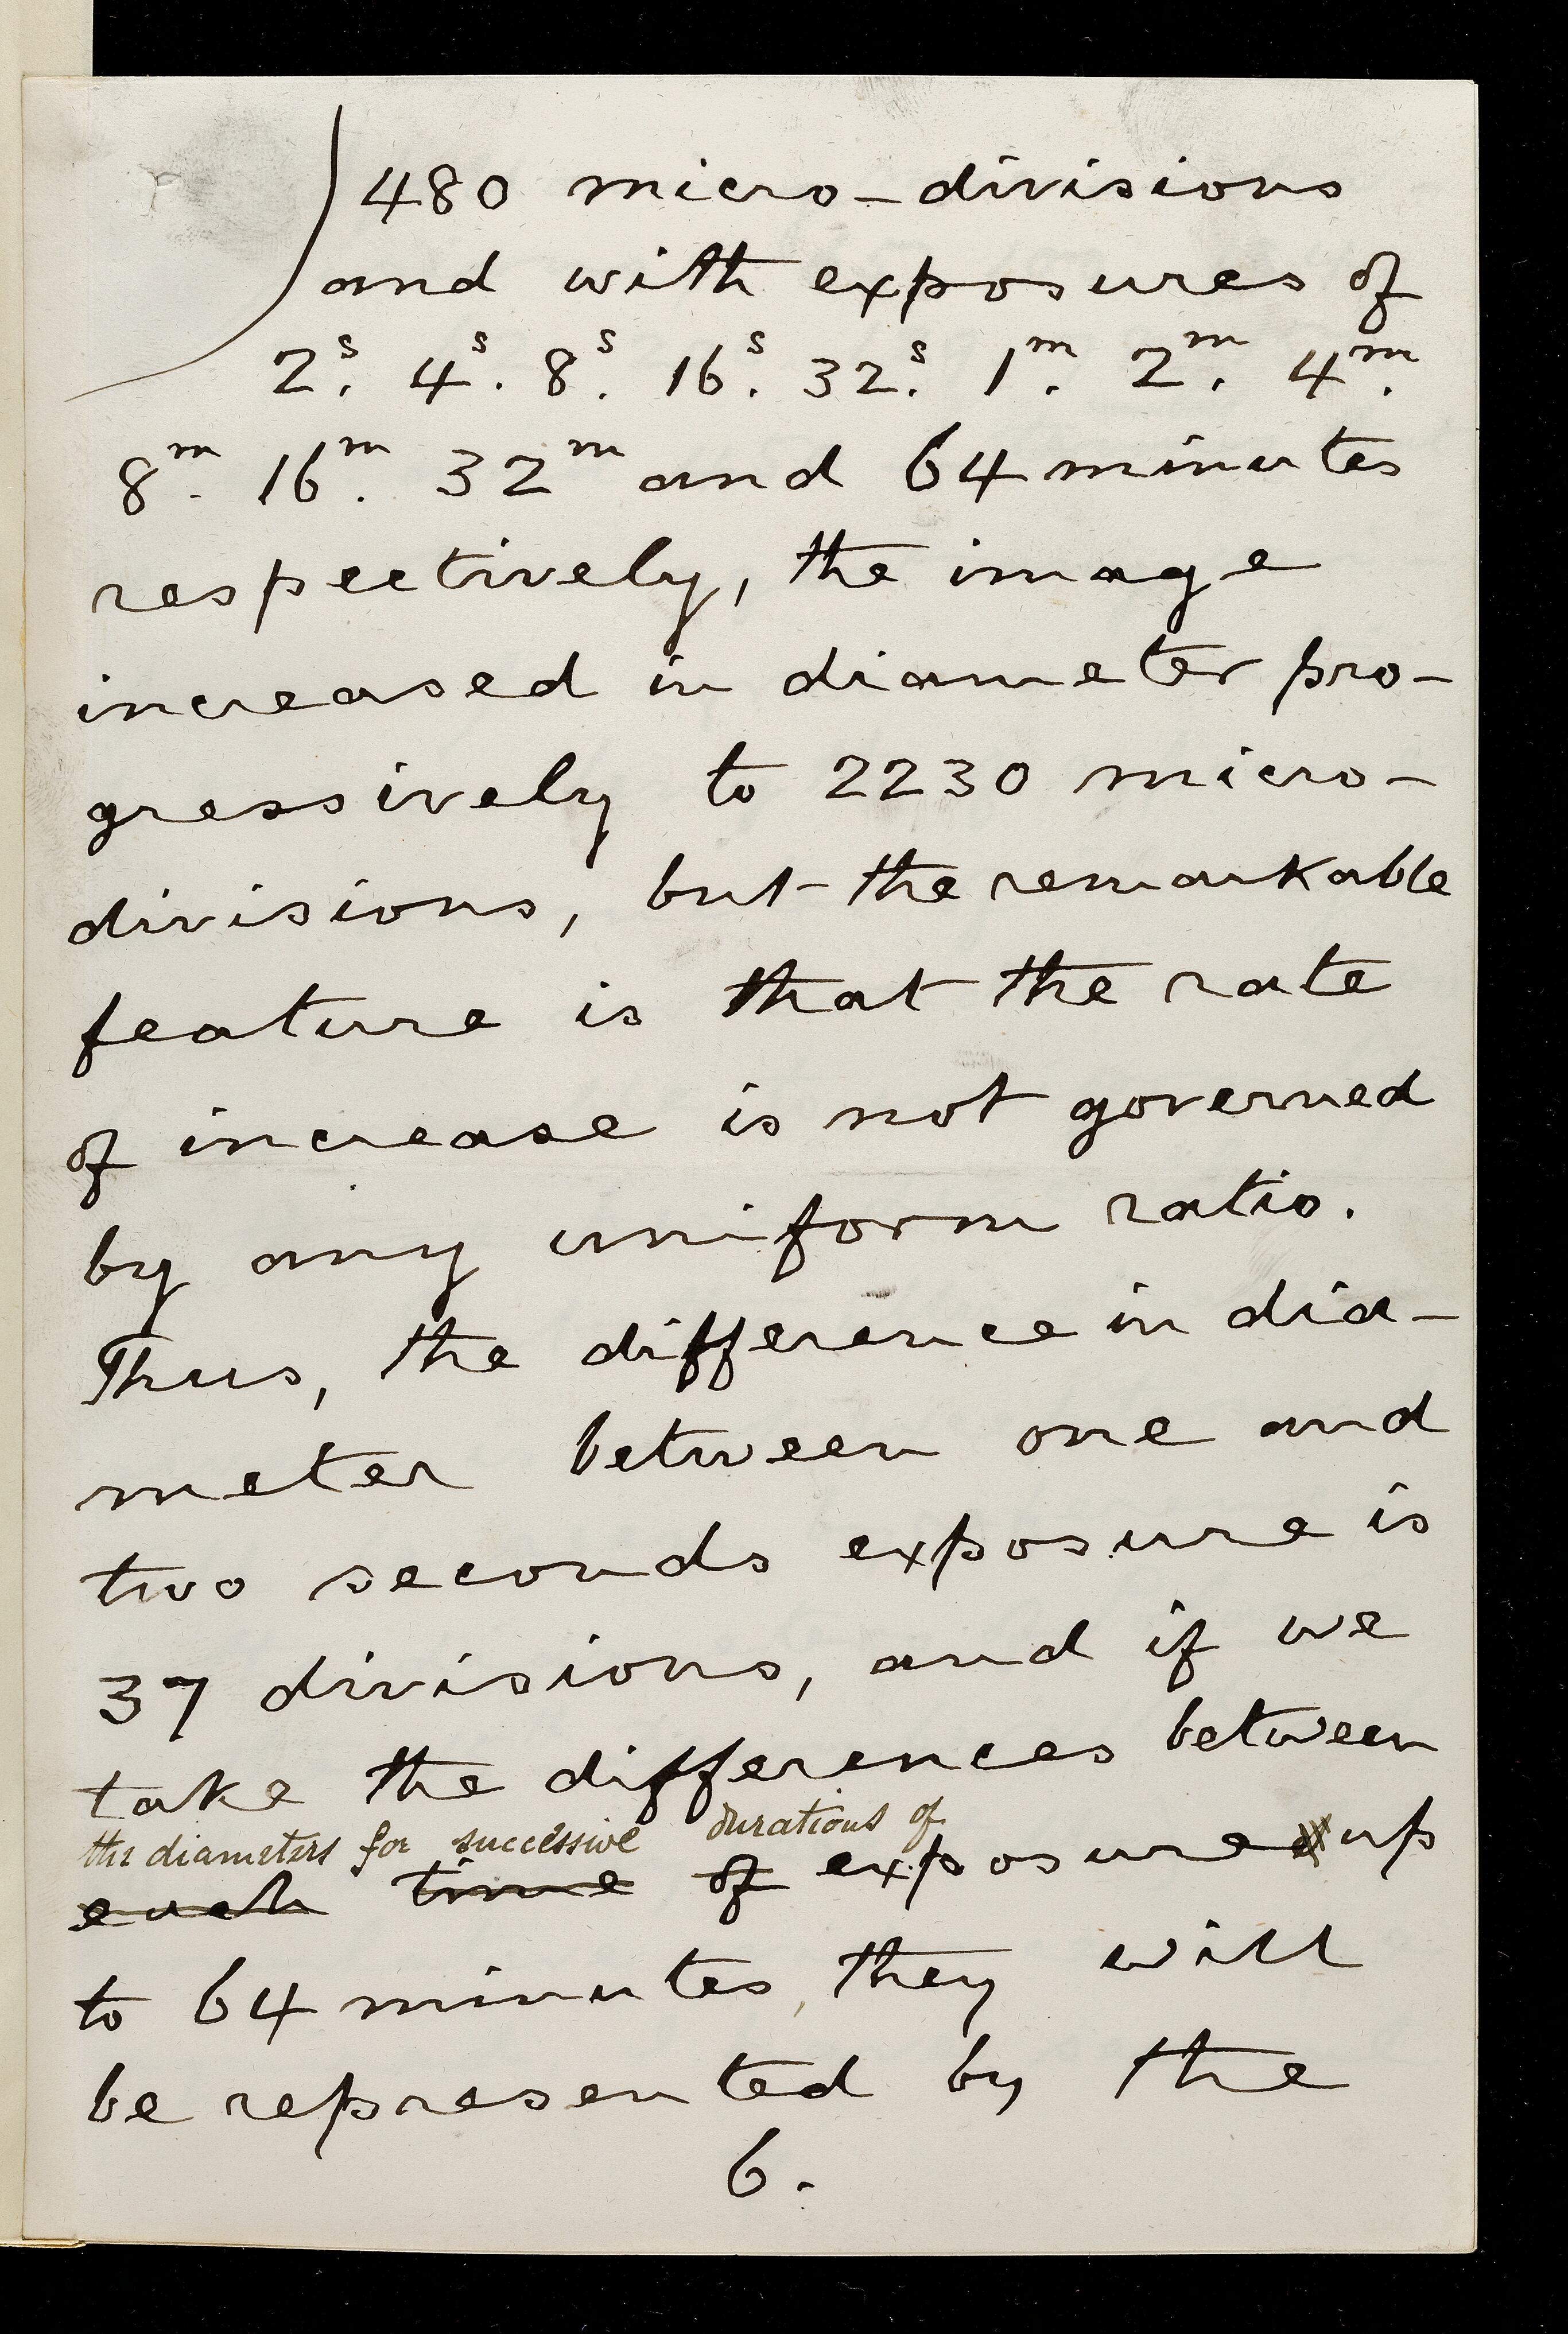 480 micro-divisions
and with exposures of
2s. 4s. 8s. 16s. 32s. 1m. 2m. 4m.
8m. 16m. 32m and 64 minutes
respectively, the image
increased in diameter pro-
gressively to 2230 micro-
divisions, but the remarkable
feature is that the rate
of increase is not governed
by any uniform ratio.
Thus, the difference in dia-
meter between one and
two seconds exposure is
37 divisions, and if we
take the differences between
the diameters for successive durations of
each time of exposure up
to 64 minutes, they will
be represented by the
6.